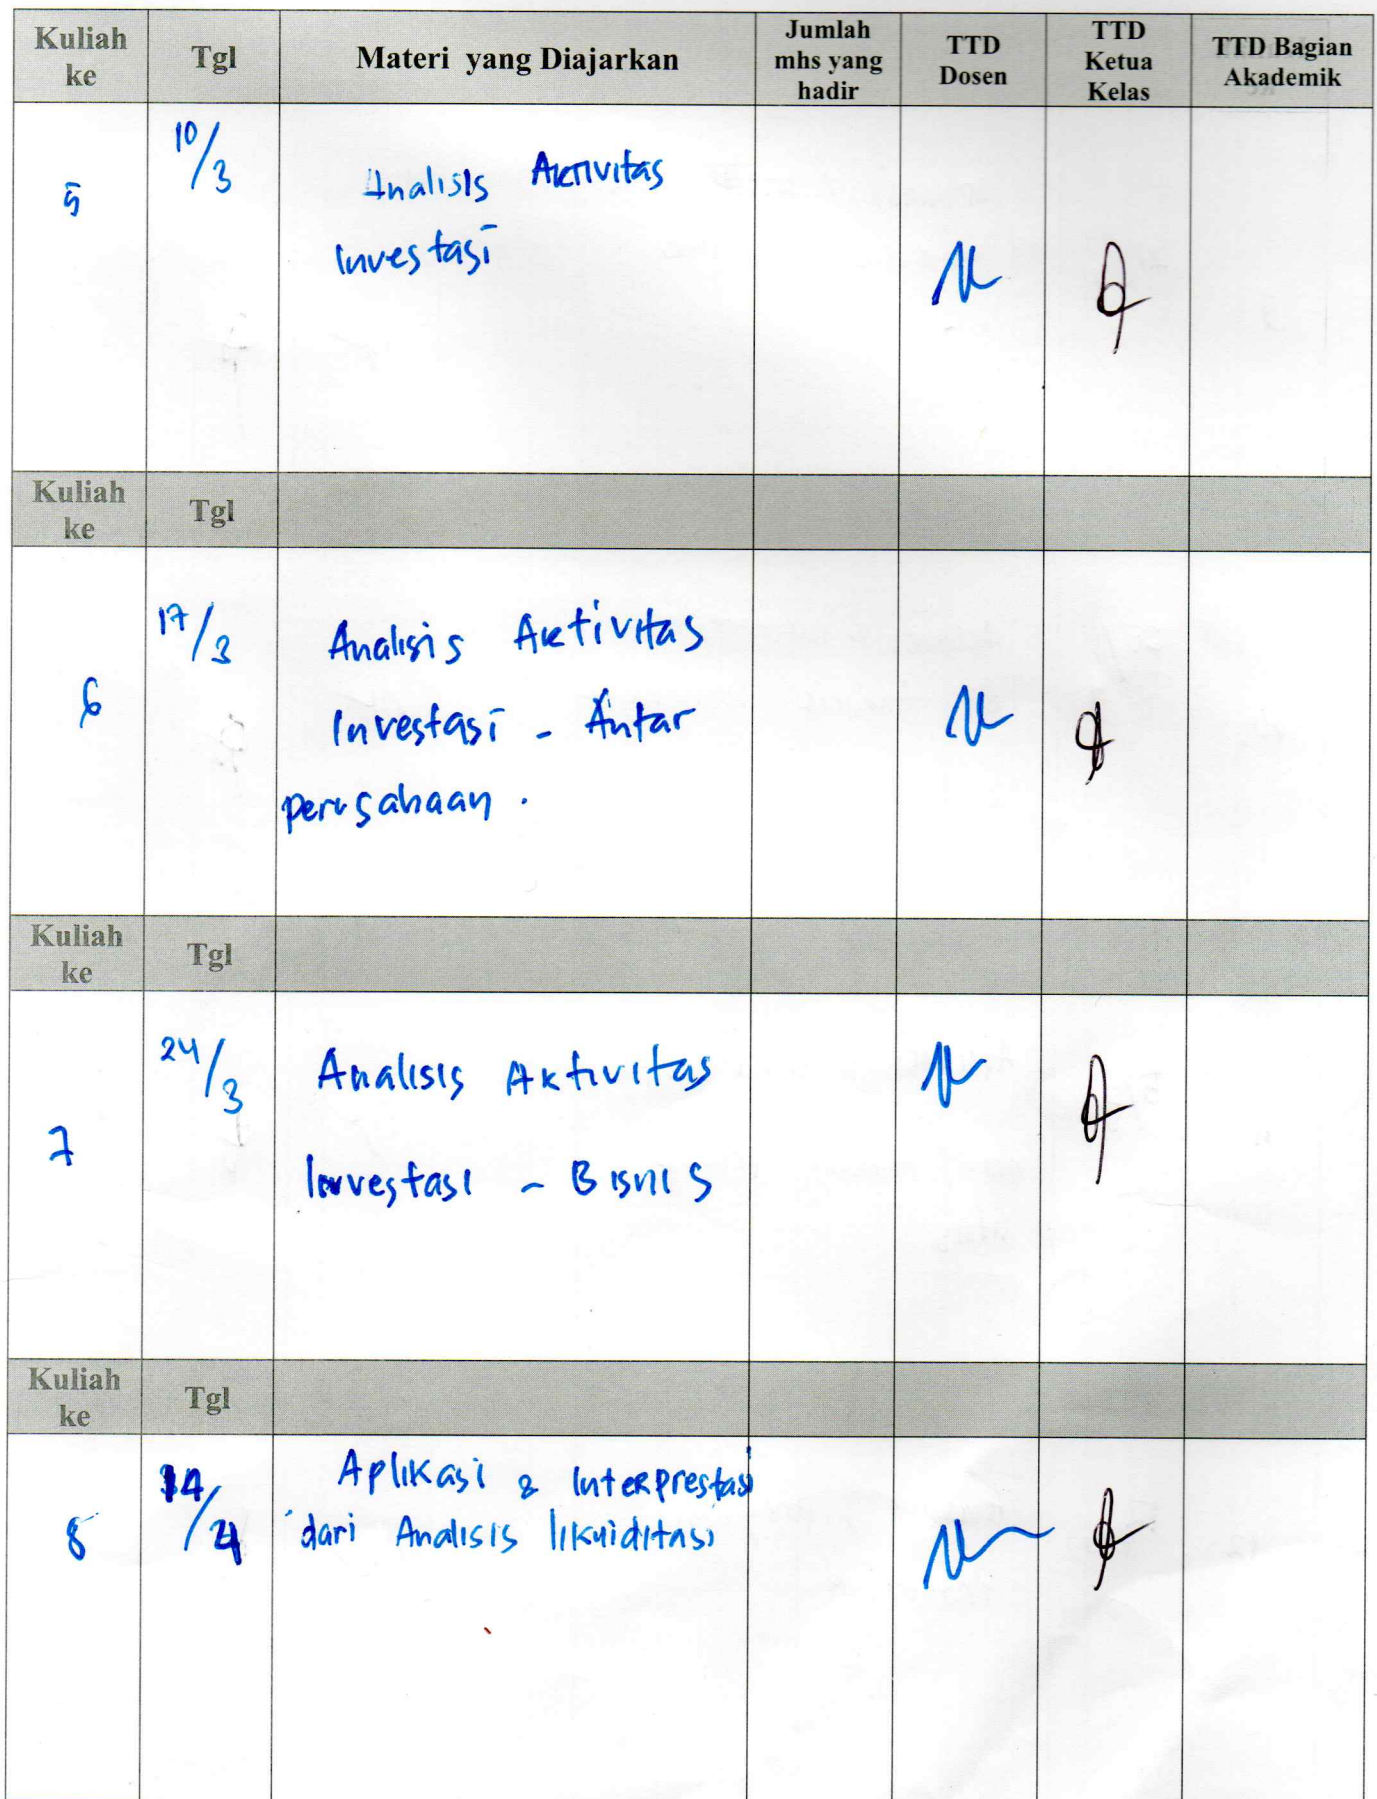 Kuliah ke Tgl Materi yang Diajarkan Jumlah mhs yang hadir TTD Dosen TTD Ketua Kelas TTD Bagian Akademik
5 10/3 Analisis Aktivitas
Investasi
Kuliah ke Tgl
6 17/3 Analisis Aktivitas
Investasi - Antar
perusahaan .
Kuliah ke Tgl
7 24/3 Analisis Aktivitas
Investasi - Bisnis
Kuliah ke Tgl
8 14/4 Aplikasi & Interprestasi
dari Analisis likuiditasi